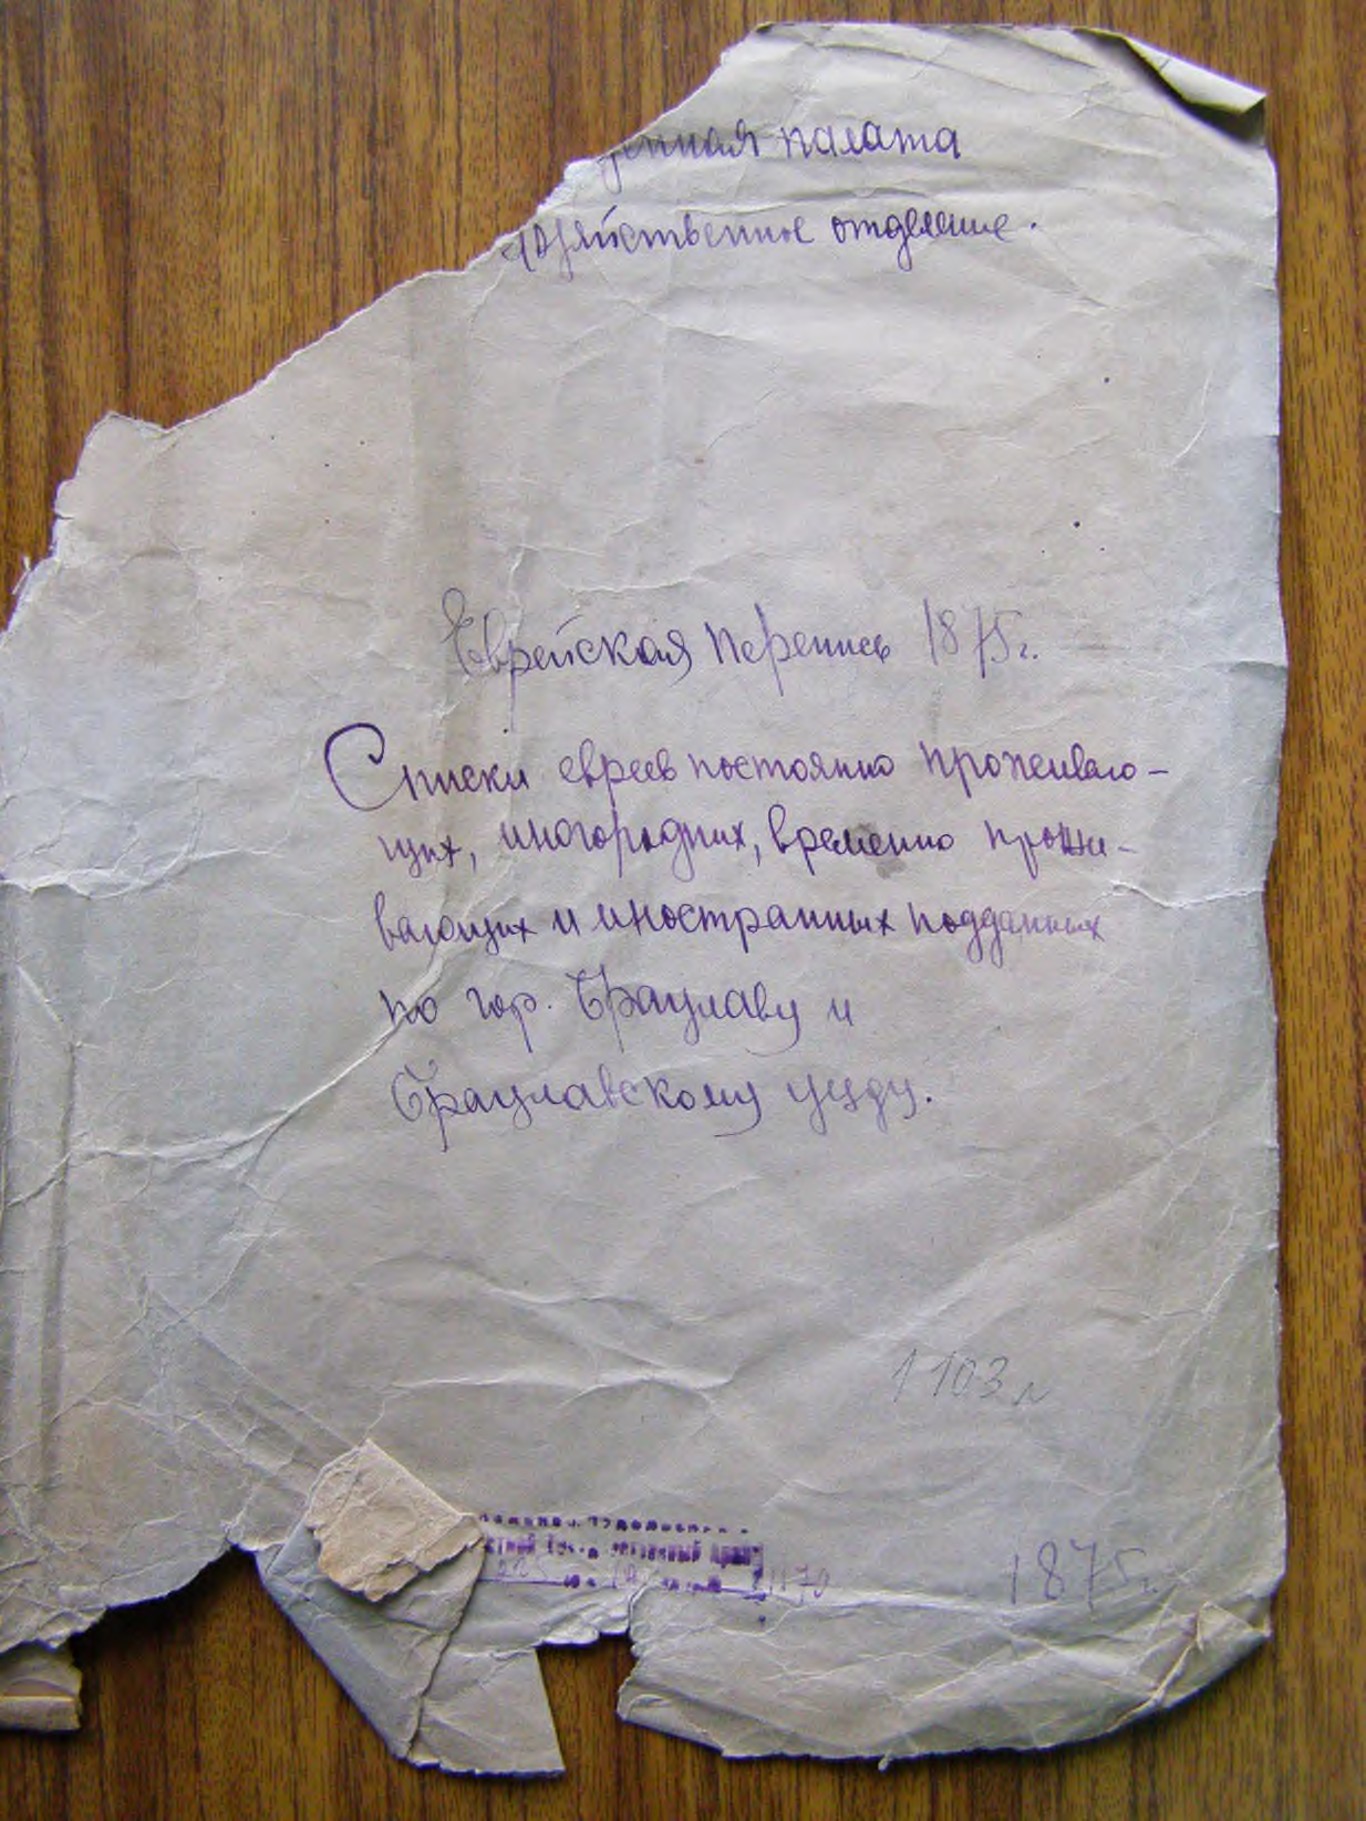 енная палата
хозяйственное отделение.
Еврейская перепись 1875г.
Списки евреев постоянно проживаю-
щих, иногородних, временно прожи-
вающих и иностранных подданных
по гор. Брацлаву и
Брацлавскому уезду.
1103 л
1875г.